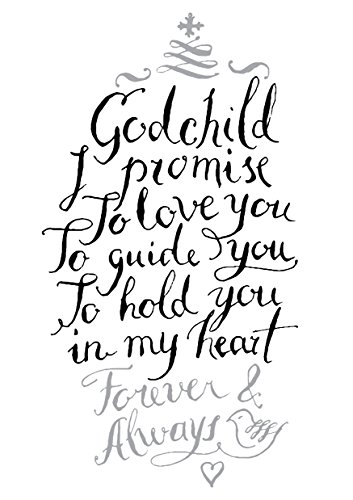 Godchild
I promise
To love you
To guide you
To hold you
in my heart
Forever &
Always